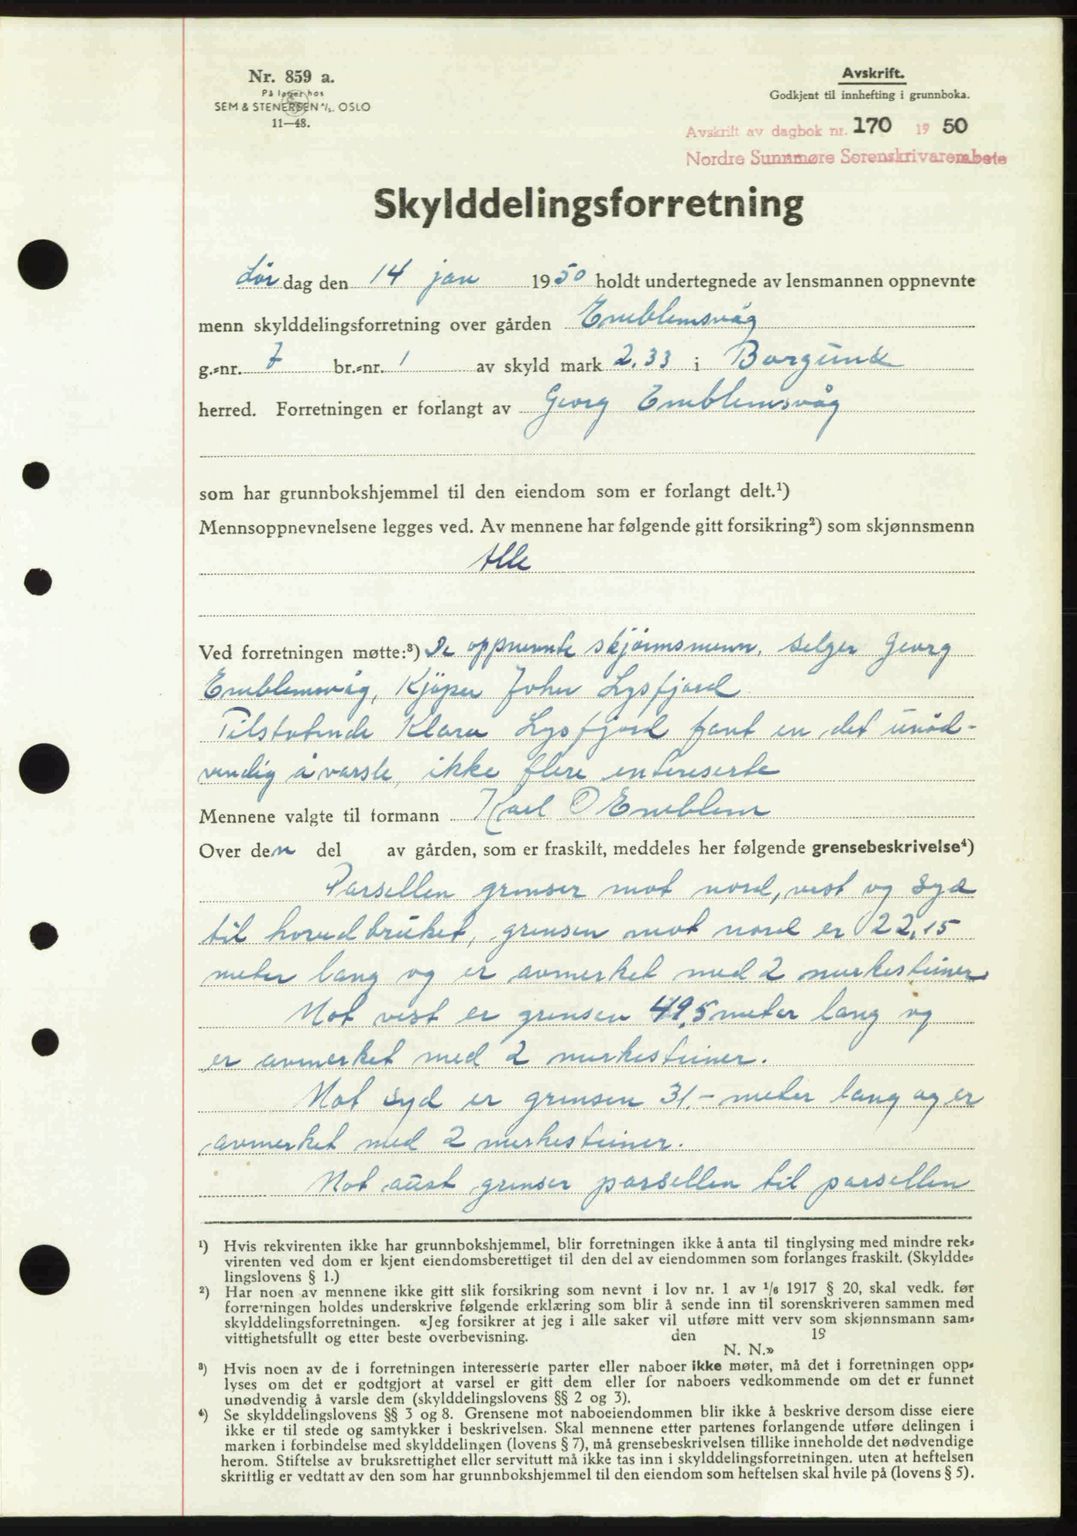 Nr. 859 a.
På lager hos
SEM & STENERSEN A/S. OSLO
11—48.
Avskrift.
Godkjent til innhefting i grunnboka.
Avskrift av dagbok nr. 170 19 50
Nordre Sunnmøre Sorenskrivarembete
Skylddelingsforretning
Lør dag den 14 jan 1950 holdt undertegnede av lensmannen oppnevnte
menn skylddelingsforretning over gården Emblemsvåg
g.-nr. 7 br.-nr. 1 av skyld mark 2.33 i Borgund
herred. Forretningen er forlangt av Georg Emblemsvåg
som har grunnbokshjemmel til den eiendom som er forlangt delt.¹)
Mennsoppnevnelsene legges ved. Av mennene har følgende gitt forsikring²) som skjønnsmenn
Alle
Ved forretningen møtte:³) De oppnevnte skjönnsmenn, selger Georg
Emblemsvåg, Kjöper John Lysfjord
Tilstøtende Klara Lysfjord fant en det unöd-
vendig å varsle, ikke flere intereserte
Mennene valgte til formann Karl O Emblem
Over den del av gården, som er fraskilt, meddeles her følgende grensebeskrivelse⁴)
Parsellen grenser mot nord, vest og syd
til hovedbruket, grensen mot nord er 22,15
meter lang og er avmerket med 2 merkesteiner
Mot vest er grensen 49,5 meter lang og
er avmerket med 2 merkesteiner.
Mot syd er grensen 31.- meter lang og er
avmerket med 2 merkesteiner.
Mot aust grenser parsellen til parsellen
¹) Hvis rekvirenten ikke har grunnbokshjemmel, blir forretningen ikke å anta til tinglysing med mindre rek-
virenten ved dom er kjent eiendomsberettiget til den del av eiendommen som forlanges fraskilt. (Skyldde-
lingslovens § 1.)
²) Har noen av mennene ikke gitt slik forsikring som nevnt i lov nr. 1 av 1/6 1917 § 20, skal vedk. før
forretningen holdes underskrive følgende erklæring som blir å sende inn til sorenskriveren sammen med
skylddelingsforretningen. «Jeg forsikrer at jeg i alle saker vil utføre mitt verv som skjønnsmann sam-
vittighetsfullt og etter beste overbevisning. den 19
N. N.»
³) Hvis noen av de i forretningen interesserte parter eller naboer ikke møter, må det i forretningen opp-
lyses om det er godtgjort at varsel er gitt dem eller for naboers vedkommende om det er funnet
unødvendig å varsle dem (skylddelingslovens §§ 2 og 3).
⁴) Se skylddelingslovens §§ 3 og 8. Grensene mot naboeiendommen blir ikke å beskrive dersom disse eiere
ikke er til stede og samtykker i beskrivelsen. Skal mennene etter partenes forlangende utføre delingen i
marken i forbindelse med skylddelingen (lovens § 7), må grensebeskrivelsen tillike inneholde det nødvendige
herom. Stiftelse av bruksrettighet eller servitutt må ikke tas inn i skylddelingsforretningen, uten at heftelsen
skriftlig er vedtatt av den som har grunnbokshjemmel til den eiendom som heftelsen skal hvile på (lovens § 5).